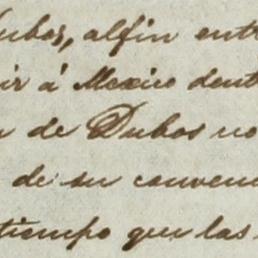 Dubos, alfin entr
ir á Mexico dent
de Dubos no
de su conven
tiempo que las